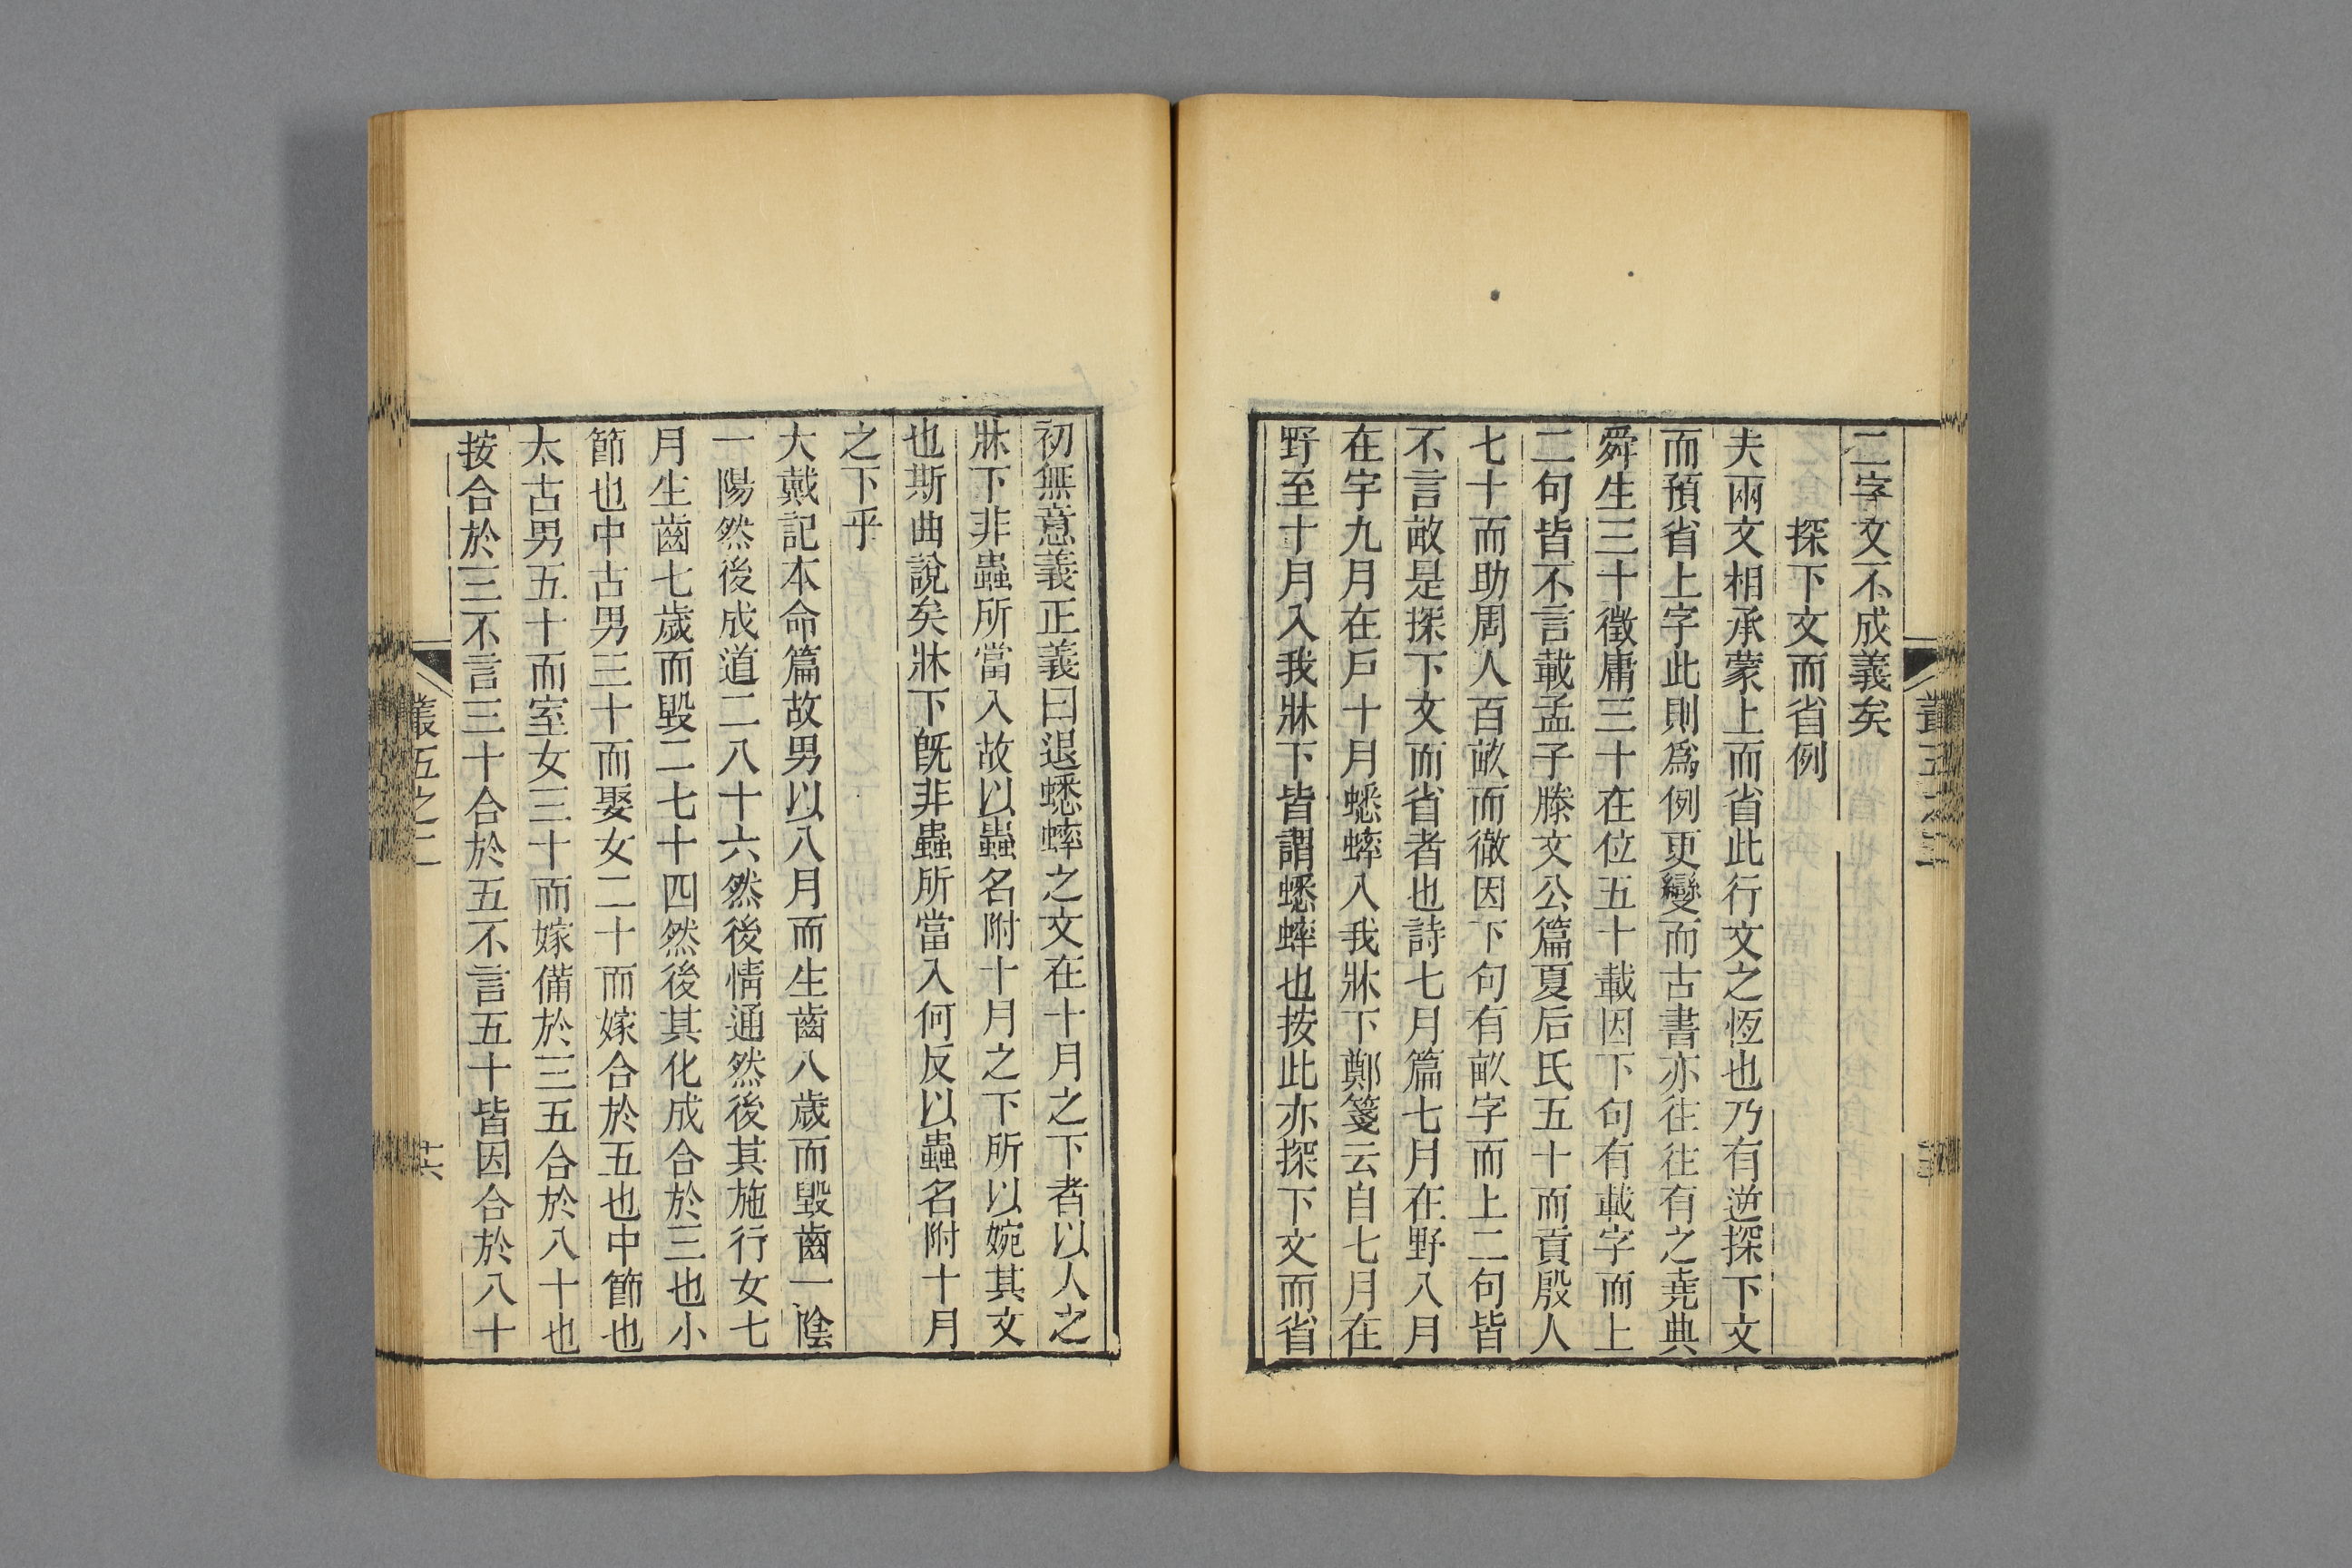 二字文不成義矣
探下文而省例
夫兩文相承蒙上而省此行文之恆也乃有逆探下文
而預省上字此則爲例更變而古書亦往往有之堯典
舜生三十徵庸三十在位五十載因下句有載字而上
二句皆不言載孟子滕文公篇夏后氏五十而貢殷人
七十而助周人百畝而徹因下句有畝字而上二句皆
不言畝是探下文而省者也詩七月篇七月在野八月
在宇九月在戶十月蟋蟀入我牀下鄭箋云自七月在
野至十月入我牀下皆謂蟋蟀也按此亦探下文而省
初無意義正義曰退蟋蟀之文在十月之下者以人之
牀下非蟲所當入故以蟲名附十月之下所以婉其文
也斯曲說矣牀下旣非蟲所當入何反以蟲名附十月
之下乎
大戴記本命篇故男以八月而生齒八歲而毀齒一陰
一陽然後成道二八十六然後情通然後其施行女七
月生齒七歲而毀二七十四然後其化成合於三也小
節也中古男三十而娶女二十而嫁合於五也中節也
太古男五十而室女三十而嫁備於三五合於八十也
按合於三不言三十合於五不言五十皆因合於八十
叢五之二